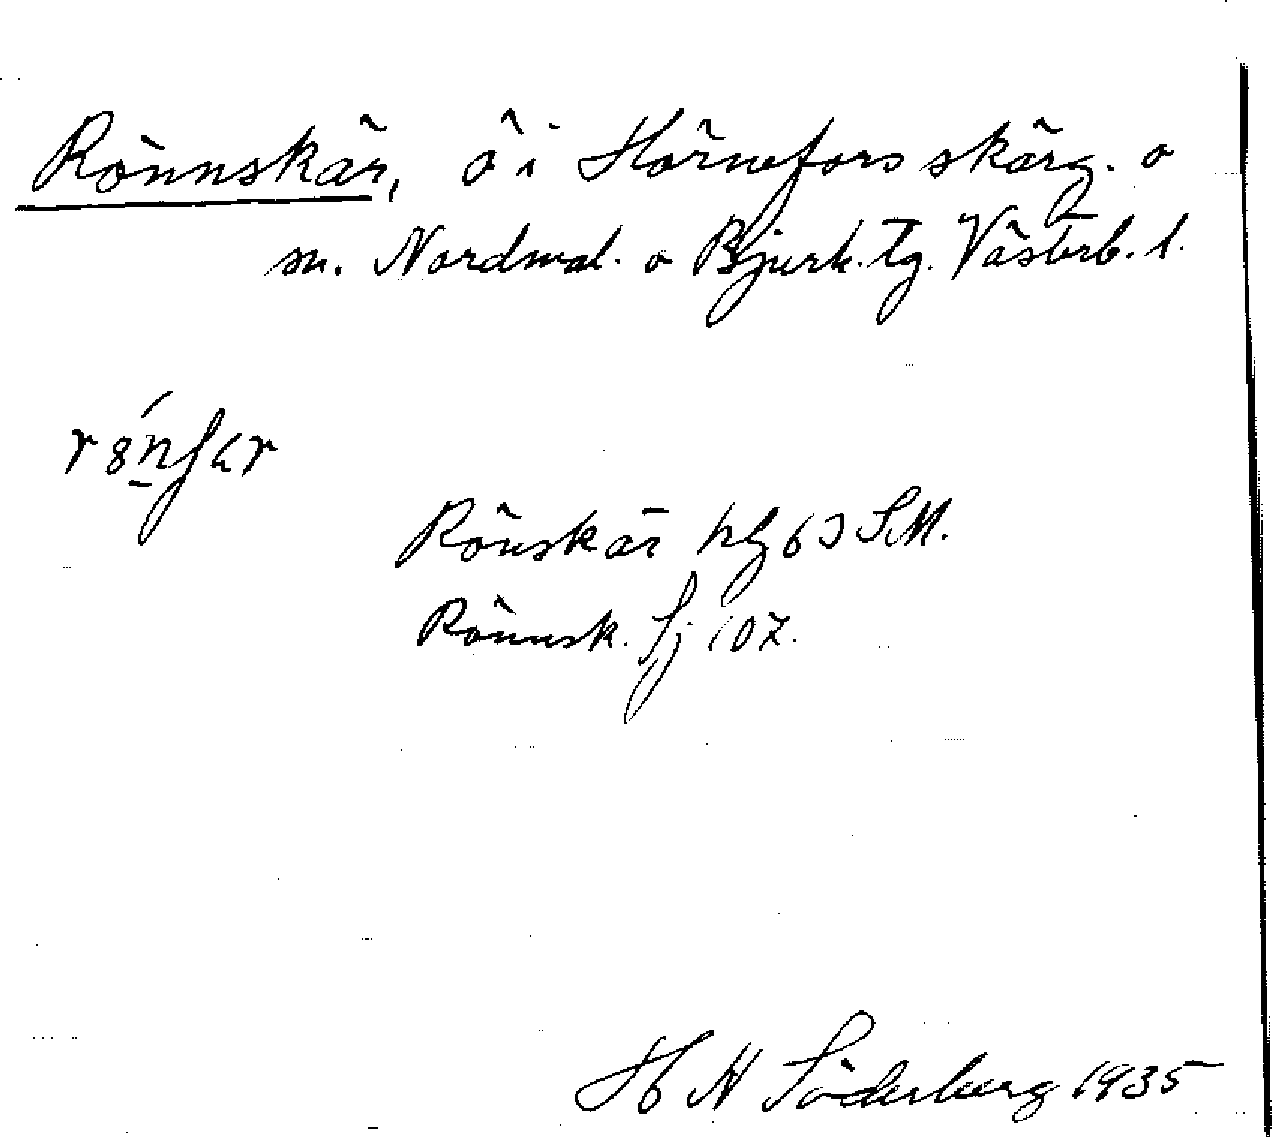 Rönnskär, ö i Hörnefors skärg. o
sn. Nordmal. o Bjurh. tg. Västerb. l.
Rönskär hg 63 SM.
Rönnsk. Sj 107.
H N Söderberg 1935